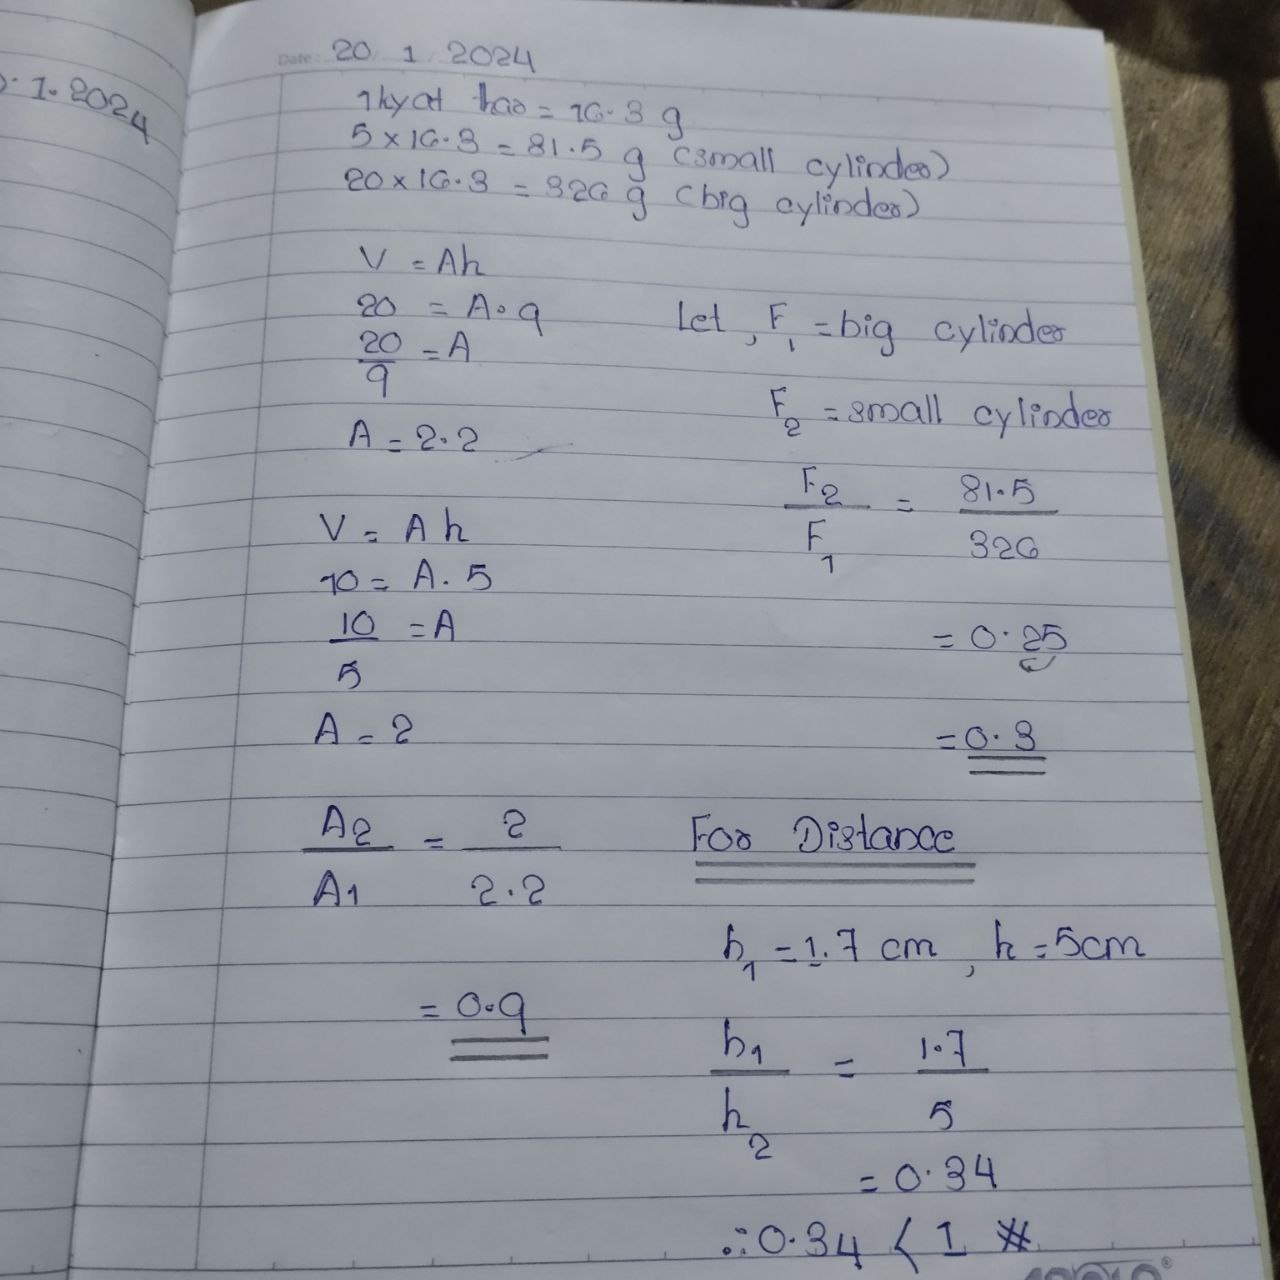 Date: 20 1 2024
1. 2024
1kyat has = 16.3 g
5 × 16.3 = 81.5 g (small cylinder)
20 × 16.3 = 326 g (big cylinder)
V = Ah
20 = A.9
20/9 = A
A = 2.2
V = Ah
10 = A.5
10/5 = A
A = 2
A2/A1 = 2/2.2
= 0.9
Let, F1 = big cylinder
F2 = small cylinder
F2/F1 = 81.5/326
= 0.25
= 0.3
For Distance
h1 = 1.7 cm, h = 5cm
h1/h2 = 1.7/5
= 0.34
∴ 0.34 < 1 #